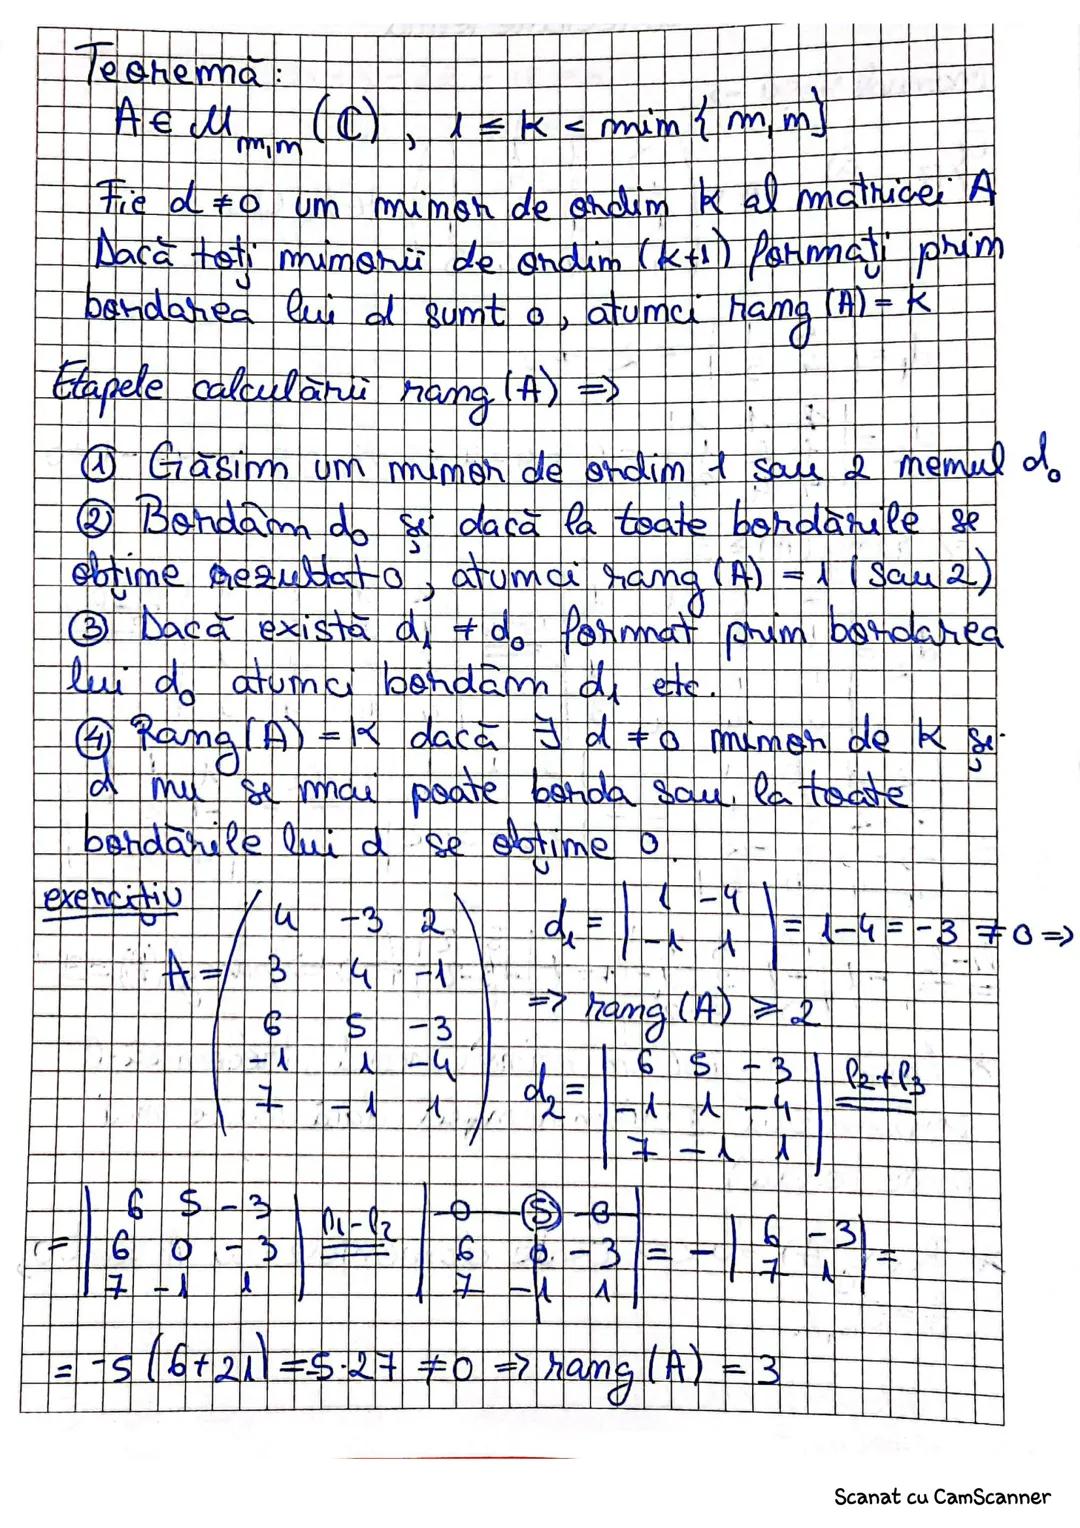 Teoremă:
A ∈ M_{m,n} (ℂ), 1 ≤ k < min {m,n}
Fie d ≠ 0 un minor de ordin k al matricei A
Dacă toți minorii de ordin (k+1) formați prin
bordarea lui d sunt 0, atunci rang (A) = k
Etapele calculării rang (A) =>
① Găsim un minor de ordin 1 sau 2 nenul d₀
② Bordăm d₀ și dacă la toate bordările se
obține rezultat 0, atunci rang (A) = 1 (sau 2)
③ Dacă există d₁ ≠ d₀ format prin bordarea
lui d₀ atunci bordăm d₁ etc.
④ Rang (A) = k dacă ∃ d ≠ 0 minor de k și
d nu se mai poate borda sau la toate
bordările lui d se obține 0.
exercițiu
A = ( 4 -3 2
3 4 -1
6 5 -3
-1 1 -4
7 -1 1 )
d₁ = | 1 -4
-1 1 | = 1-4 = -3 ≠ 0 =>
=> rang (A) ≥ 2
d₂ = | 6 5 -3
-1 1 -4
7 -1 1 | l₂+l₃
= | 6 5 -3
6 0 -3
7 -1 1 | l₁-l₂ | 0 5 0
6 0 -3
7 -1 1 | = - | 6 -3
7 1 | =
= -5 (6+21) = 5·27 ≠ 0 => rang (A) = 3
Scanat cu CamScanner